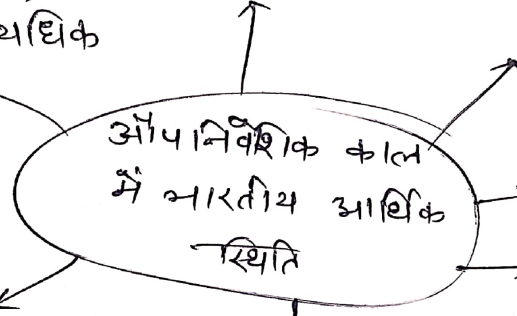 औपनिवेशिक काल
में भारतीय आर्थिक
स्थिति